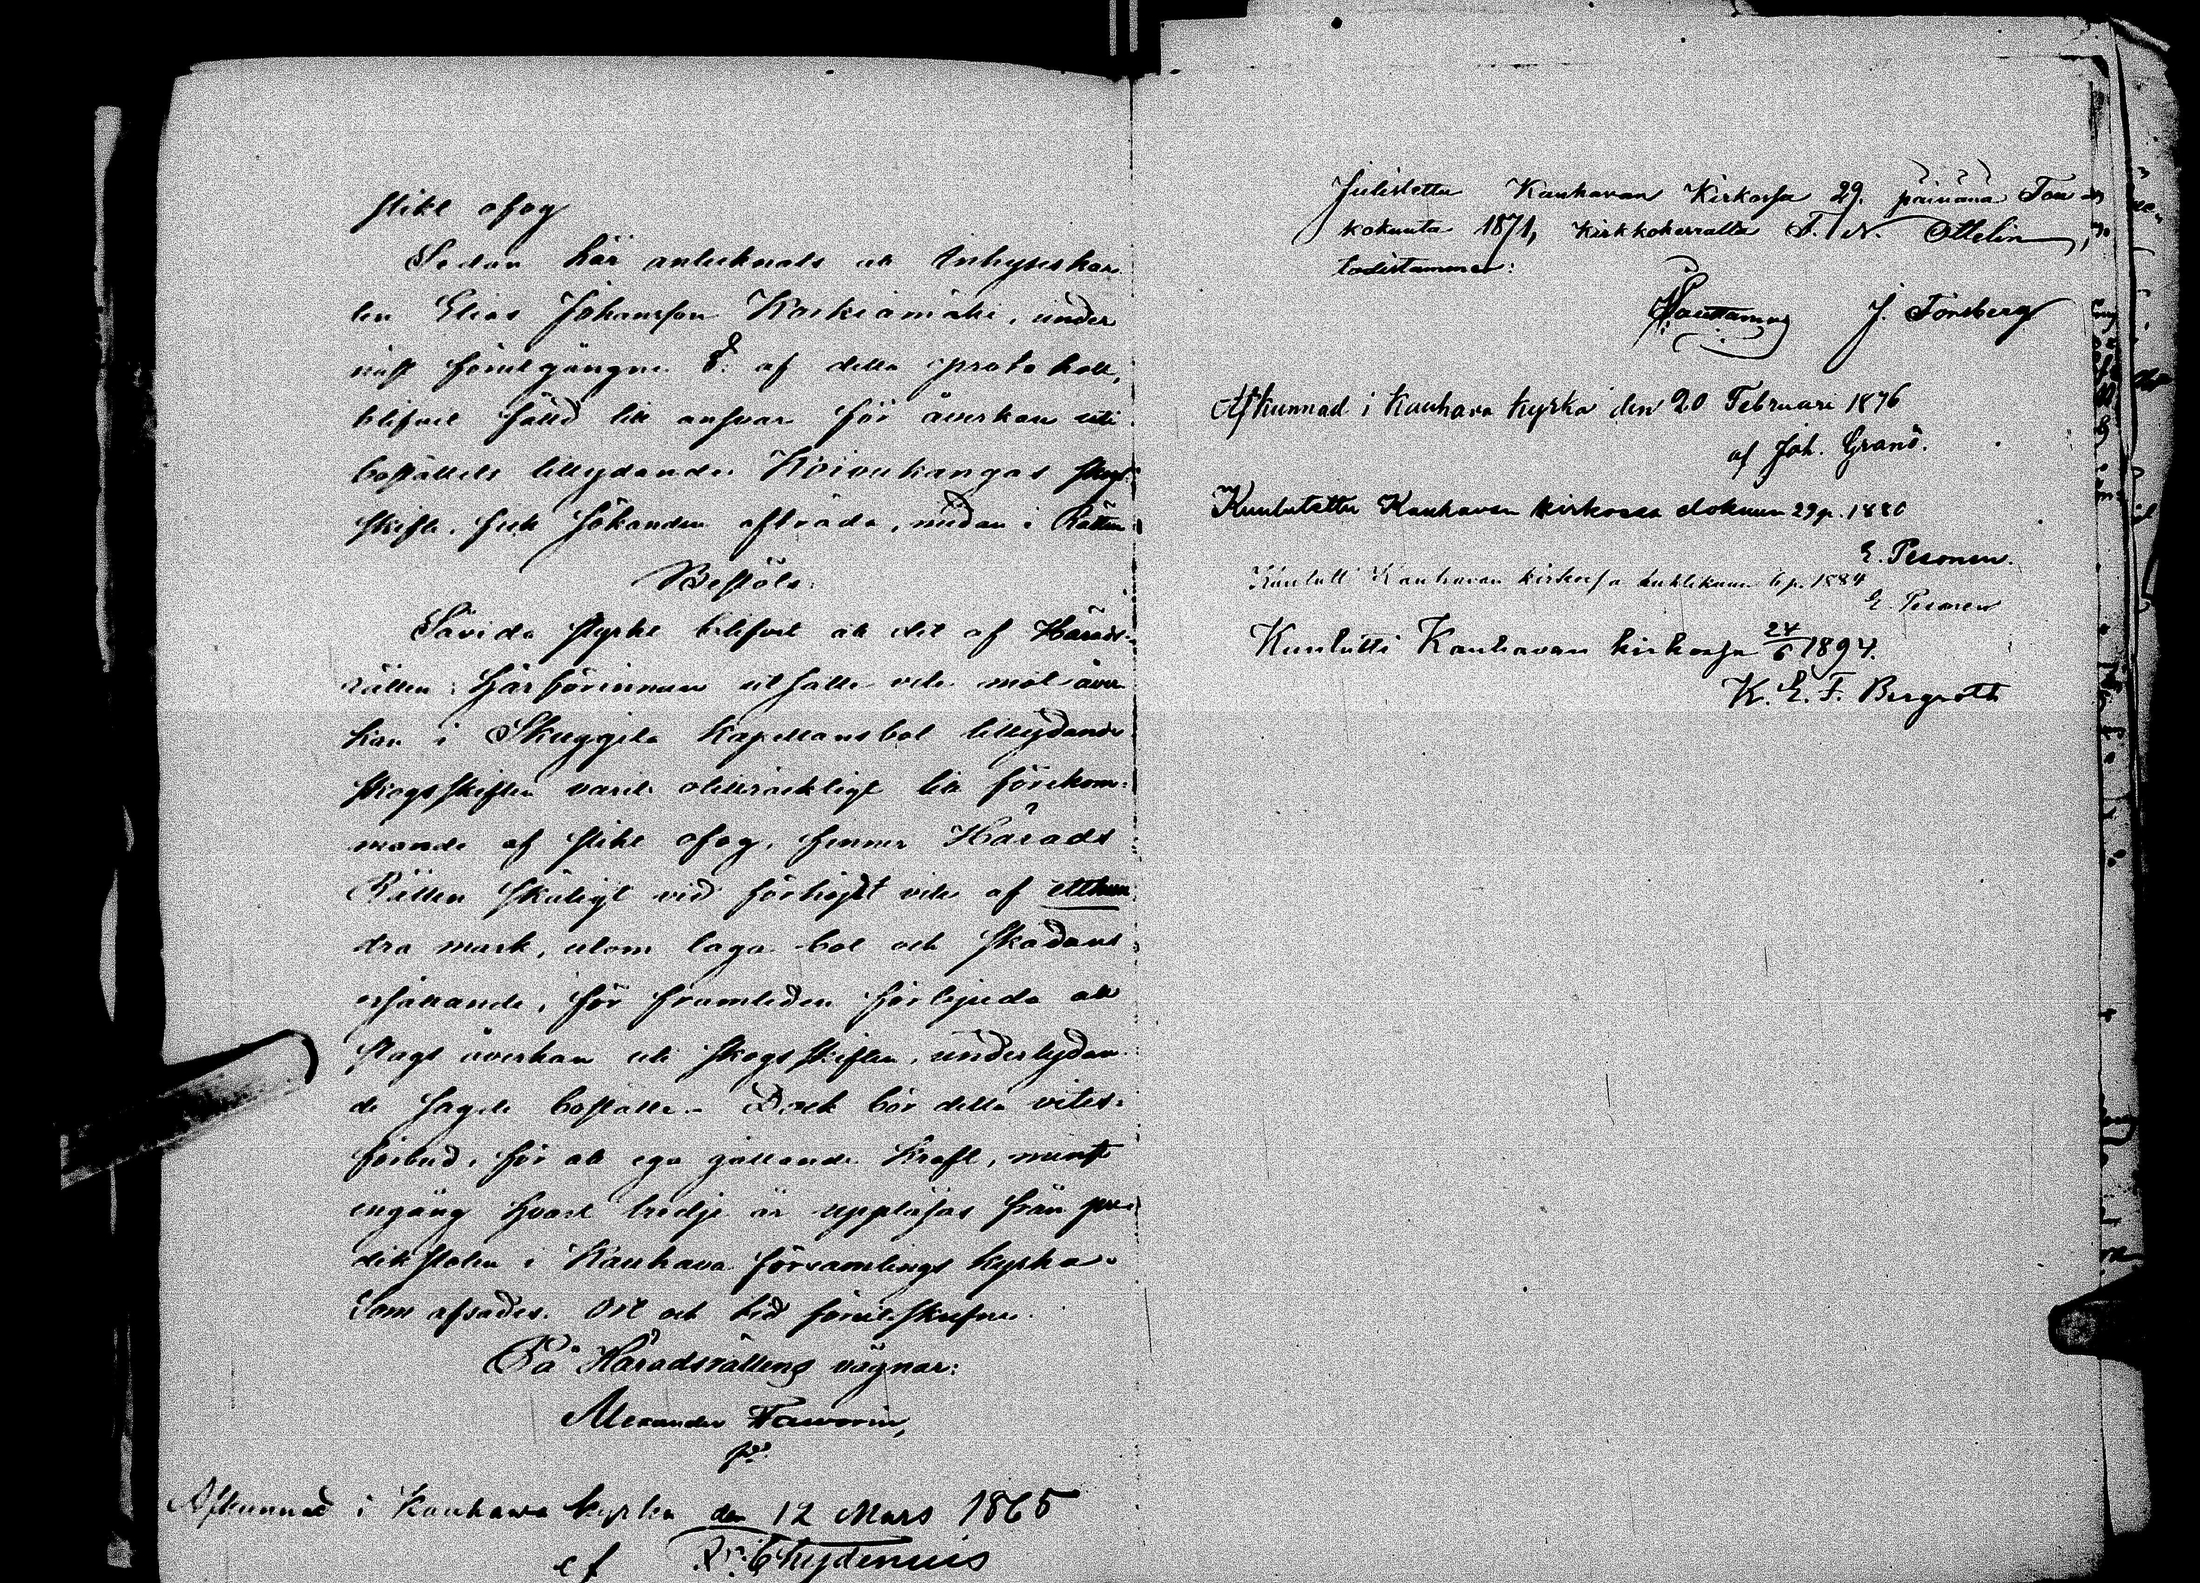 slikt ofog
Sedan här antecknats att Inhyseskar
len Elias Johansson Karkiamäki, under
näst föregångne §. af detta protokoll,
blifvit fälld till ansvar för åverkan uti
boställets tillydande Koivukangas skogs
skifte, fick sökanden afträda, medan i Rätten
Beslöts:
Såvida styrkt blifvit att det af Härads-
rätten härförinnan utsatte vite mot åver
kan i Skuggila kapellansbol tillydande
skogsskiften varit otillräckligt till förekom-
mande af slikt ofog, finner Härads
Rätten skäligt vid förhöjdt vite af etthun
dra mark, utom laga bot och skadans
ersättande, för framtiden förbjuda all
slags åverkan uti skogsskiften, underlydan
de sagde boställe. Dock bör detta vites-
förbud, för att ega gällande kraft, minst
engång hvart tredje år uppläsas från pre-
dikstolen i Kauhava församlings kyrka.
Som afsades. Ort och tid förutskrifne.
På Häradsrättens vägnar:
Alexander
Afkunnad i Kauhava kyrka den 12 Mars 1865
af Chydenius
Julistettu Kauhavan Kirkossa 29. päivänä Tou
kokuuta 1871, kirkkoherralta F. N. Ottelin,
todistamme:
J. Forsberg
Afkunnad i Kauhava kyrka den 20 Februari 1876
af Joh. Granö.
Kuulutettu Kauhavan kirkossa elokuun 29 p. 1880
E. Pesonen.
Kuulutt Kauhavan kirkossa huhtikuun 6 p. 1884
E. Pesonen
Kuulutti Kauhavan kirkossa 24/6 1894.
K. E. F. Bergroth